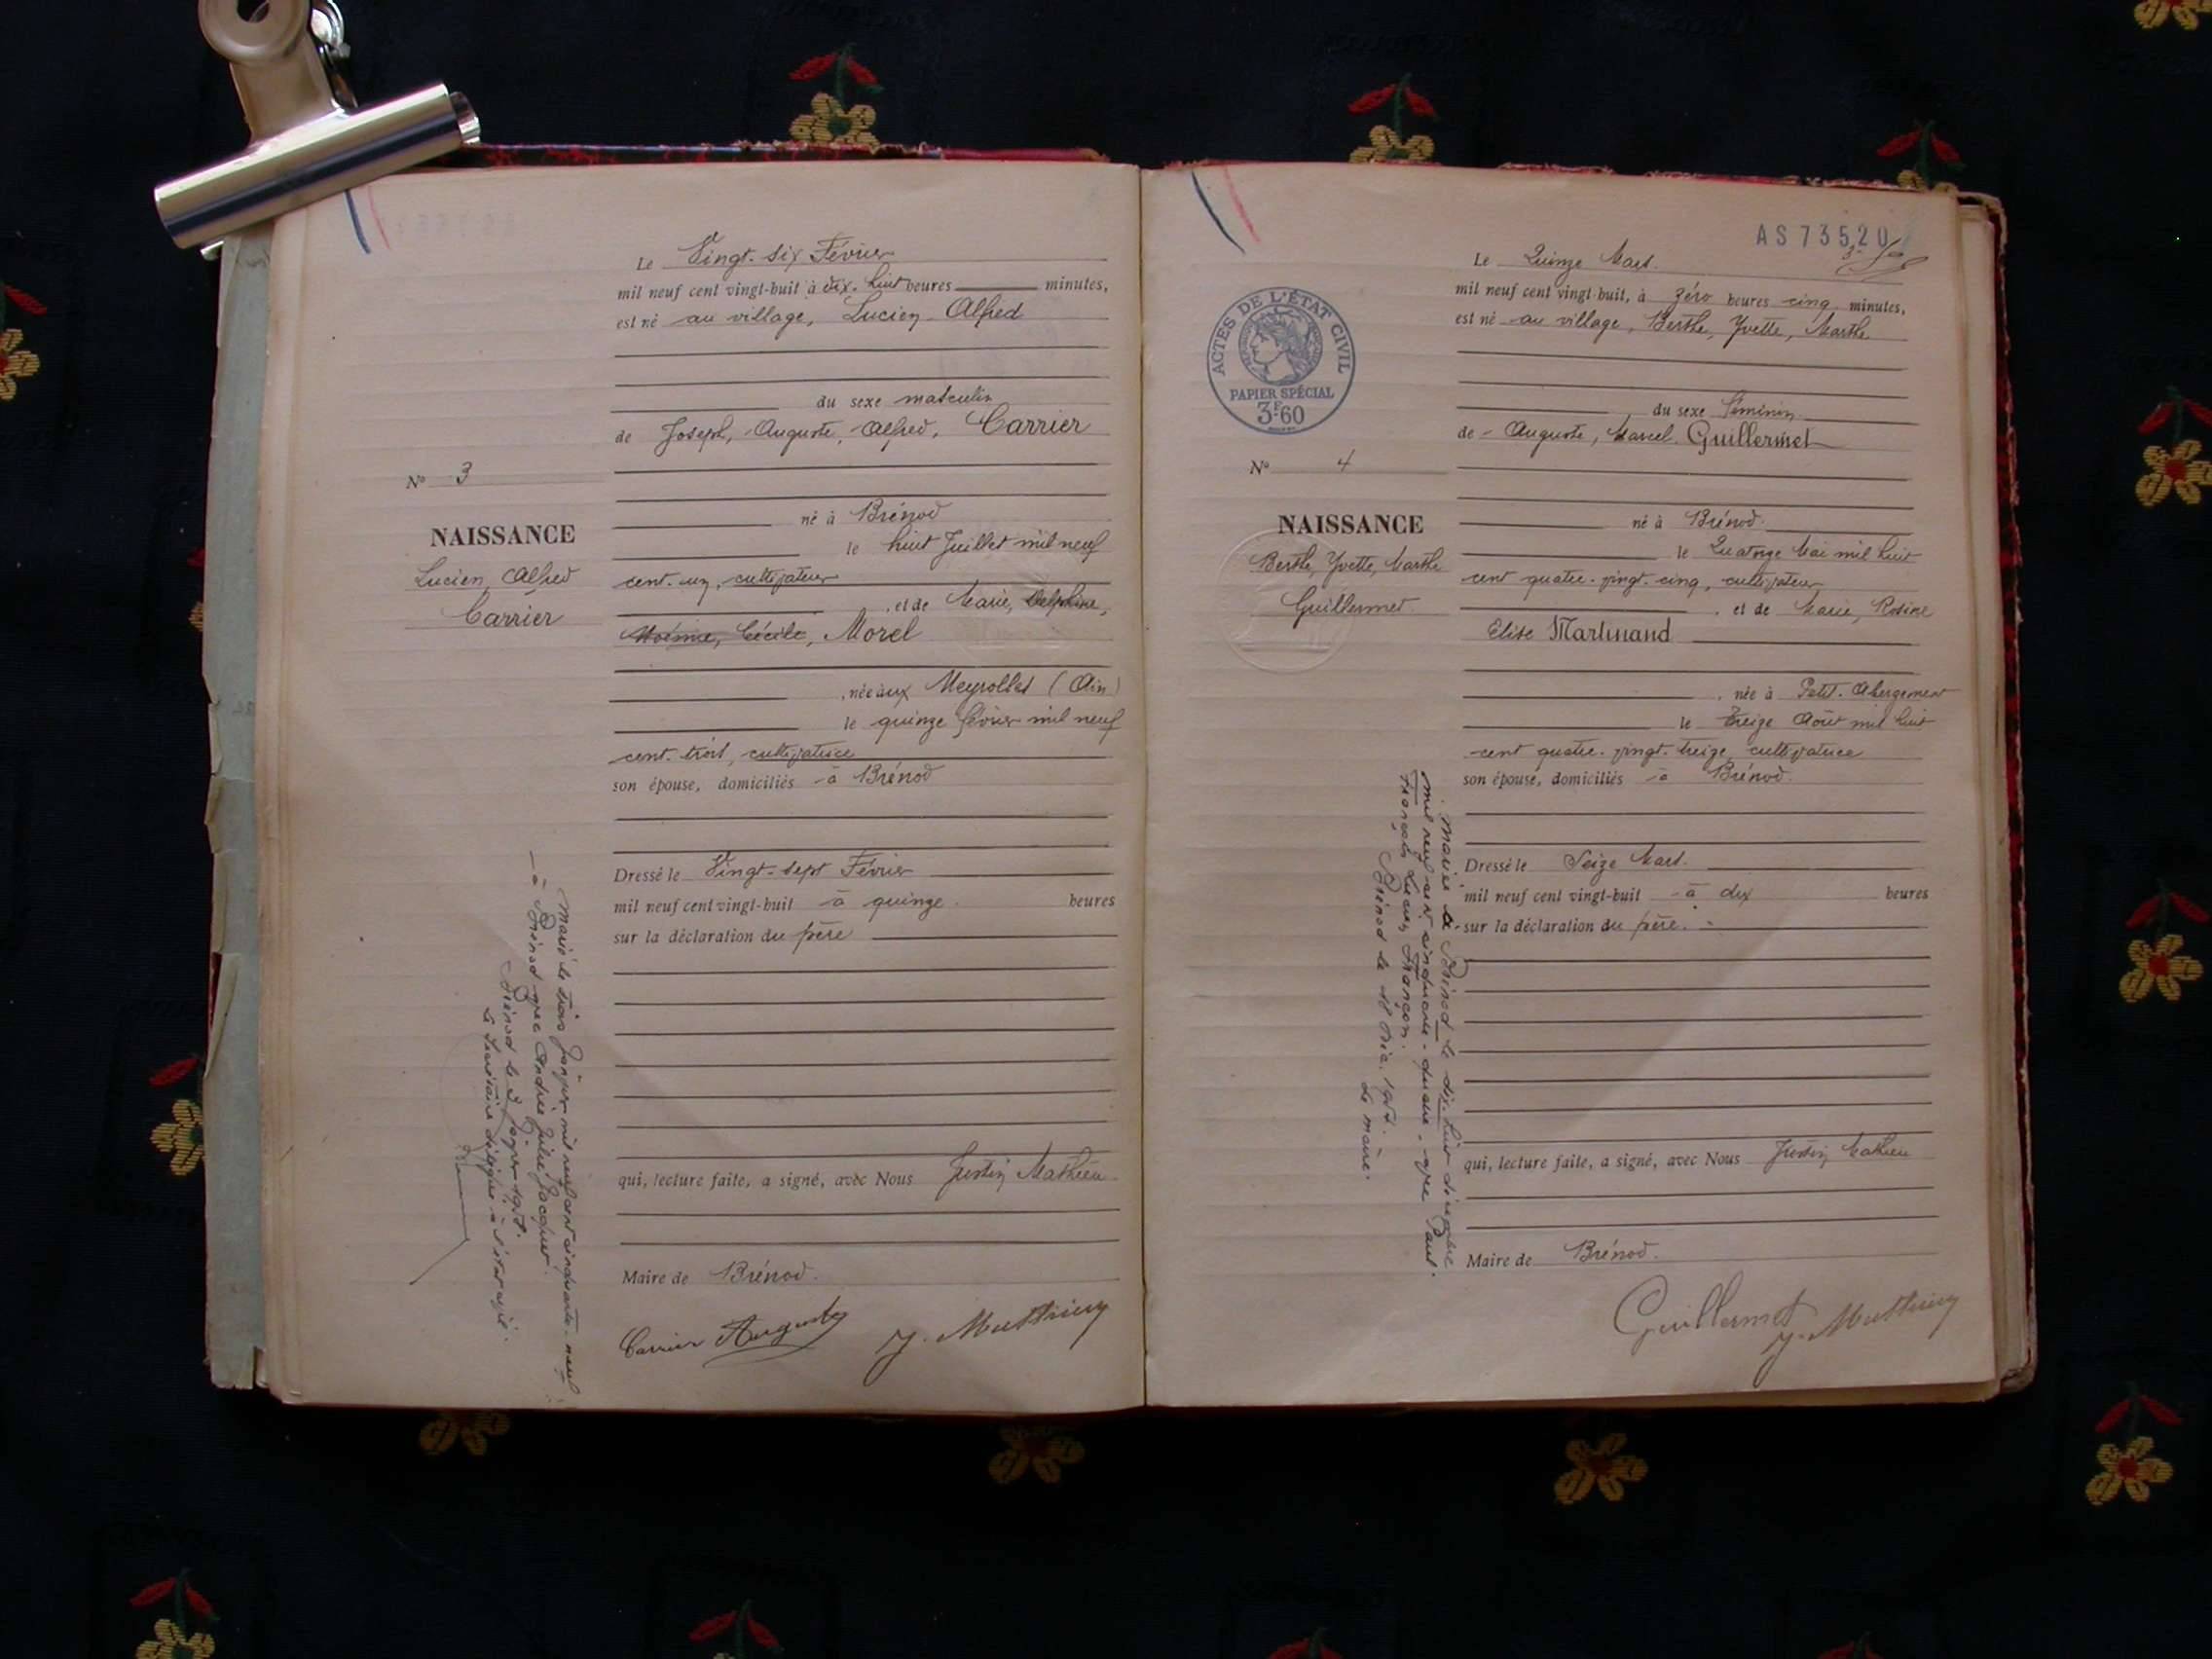 Le Vingt-six Février
mil neuf cent vingt-huit à dix-huit heures minutes,
est né au village, Lucien Alfred
du sexe masculin
de Joseph, Auguste, Alfred, Carrier
né à Brénod
le huit Juillet mil neuf
cent un, cultivateur
, et de Marie, Delphine,
Noémie, Cécile, Morel
, née aux Neyrolles (Ain)
le quinze février mil neuf
cent trois, cultivatrice
son épouse, domiciliés à Brénod
Dressé le Vingt-sept Février
mil neuf cent vingt-huit à quinze heures
sur la déclaration du père
qui, lecture faite, a signé, avec Nous Justin Mathieu
Maire de Brénod.
Carrier Auguste J. Mathieu
No 3
NAISSANCE
Lucien, Alfred
Carrier
Marié le trois Janvier mil neuf cent cinquante-neuf
à Brénod avec Andrée Julie Jacquet.
Brénod le 3 Janvier
Le Secrétaire délégué à l'état civil.
AS 73520
Le Quinze Mars.
mil neuf cent vingt-huit, à zéro heures cinq minutes,
est né au village, Berthe, Yvette, Marthe
du sexe féminin
de Auguste, Marcel Guillermet
né à Brénod.
le Quatorze Mai mil huit
cent quatre-vingt-cinq, cultivateur
, et de Marie, Rosine
Elise Martinand
, née à Petit-Abergement
le Treize Août mil huit
cent quatre-vingt-treize, cultivatrice
son épouse, domiciliés à Brénod.
Dressé le Seize Mars.
mil neuf cent vingt-huit à dix heures
sur la déclaration du père.
qui, lecture faite, a signé, avec Nous Justin Mathieu
Maire de Brénod.
Guillermet
J. Mathieu
ACTES DE L'ÉTAT CIVIL
PAPIER SPÉCIAL
3F60
No 4
NAISSANCE
Berthe, Yvette, Marthe
Guillermet
Mariée à Brénod le dix-huit décembre
mil neuf cent cinquante-quatre avec Paul
François Lucien Françon.
Brénod le 18 Déc.
Le maire.